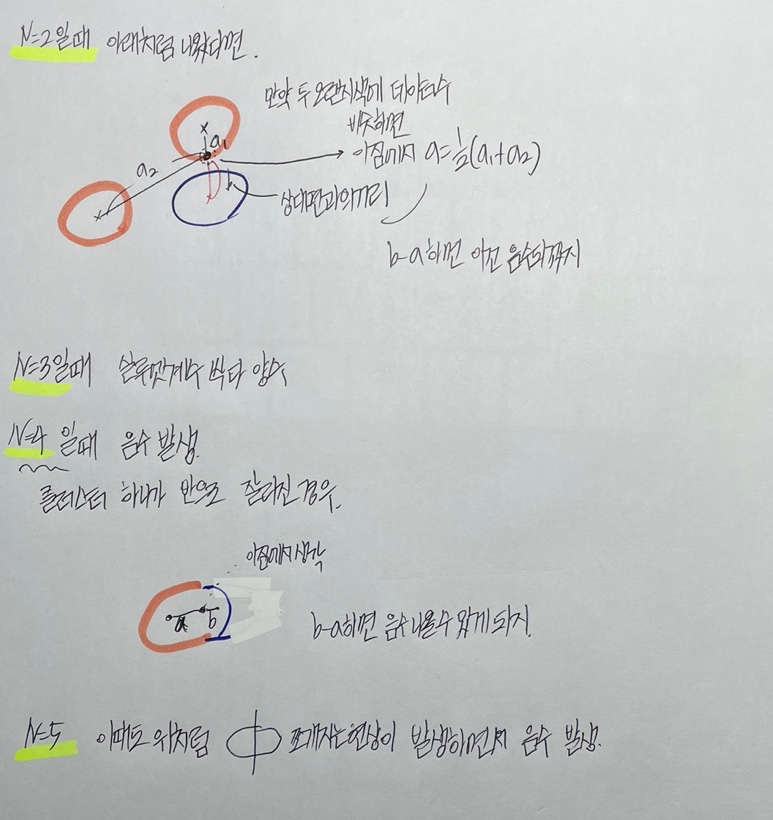 N=2일때 아래처럼 나왔다면.
만약 두 오렌지색에 데이터수
비슷하면
이점에서 a=½(a₁+a₂)
a₁
a₂
상대편과의거리
b-a하면 이건 음수되겠지
N=3일때 실루엣계수 싹다 양수
N=4 일때 음수 발생.
클러스터 하나가 반으로 잘라진 경우.
이점에서 생각
a b
b-a하면 음수나올수 있게되지.
N=5 이때도 위처럼 쪼개지는현상이 발생하면서 음수 발생.